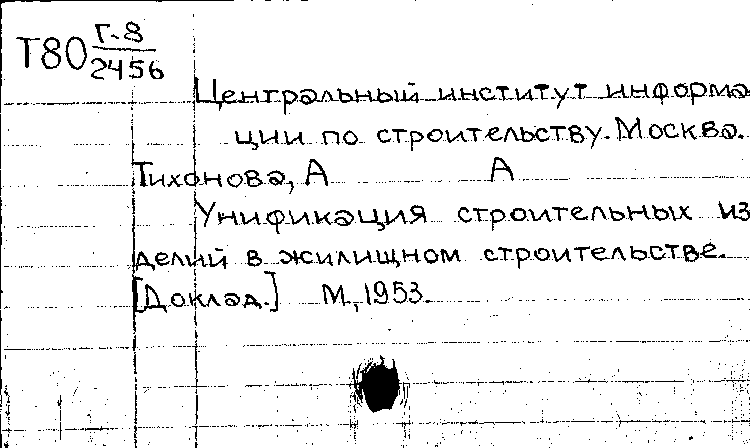 Т80 Г-8/2456
Центральный институт информа
ции по строительству. Москва.
Тихонова, А А
Унификация строительных из
делий в жилищном строительстве.
[Доклад.] М, 1953.